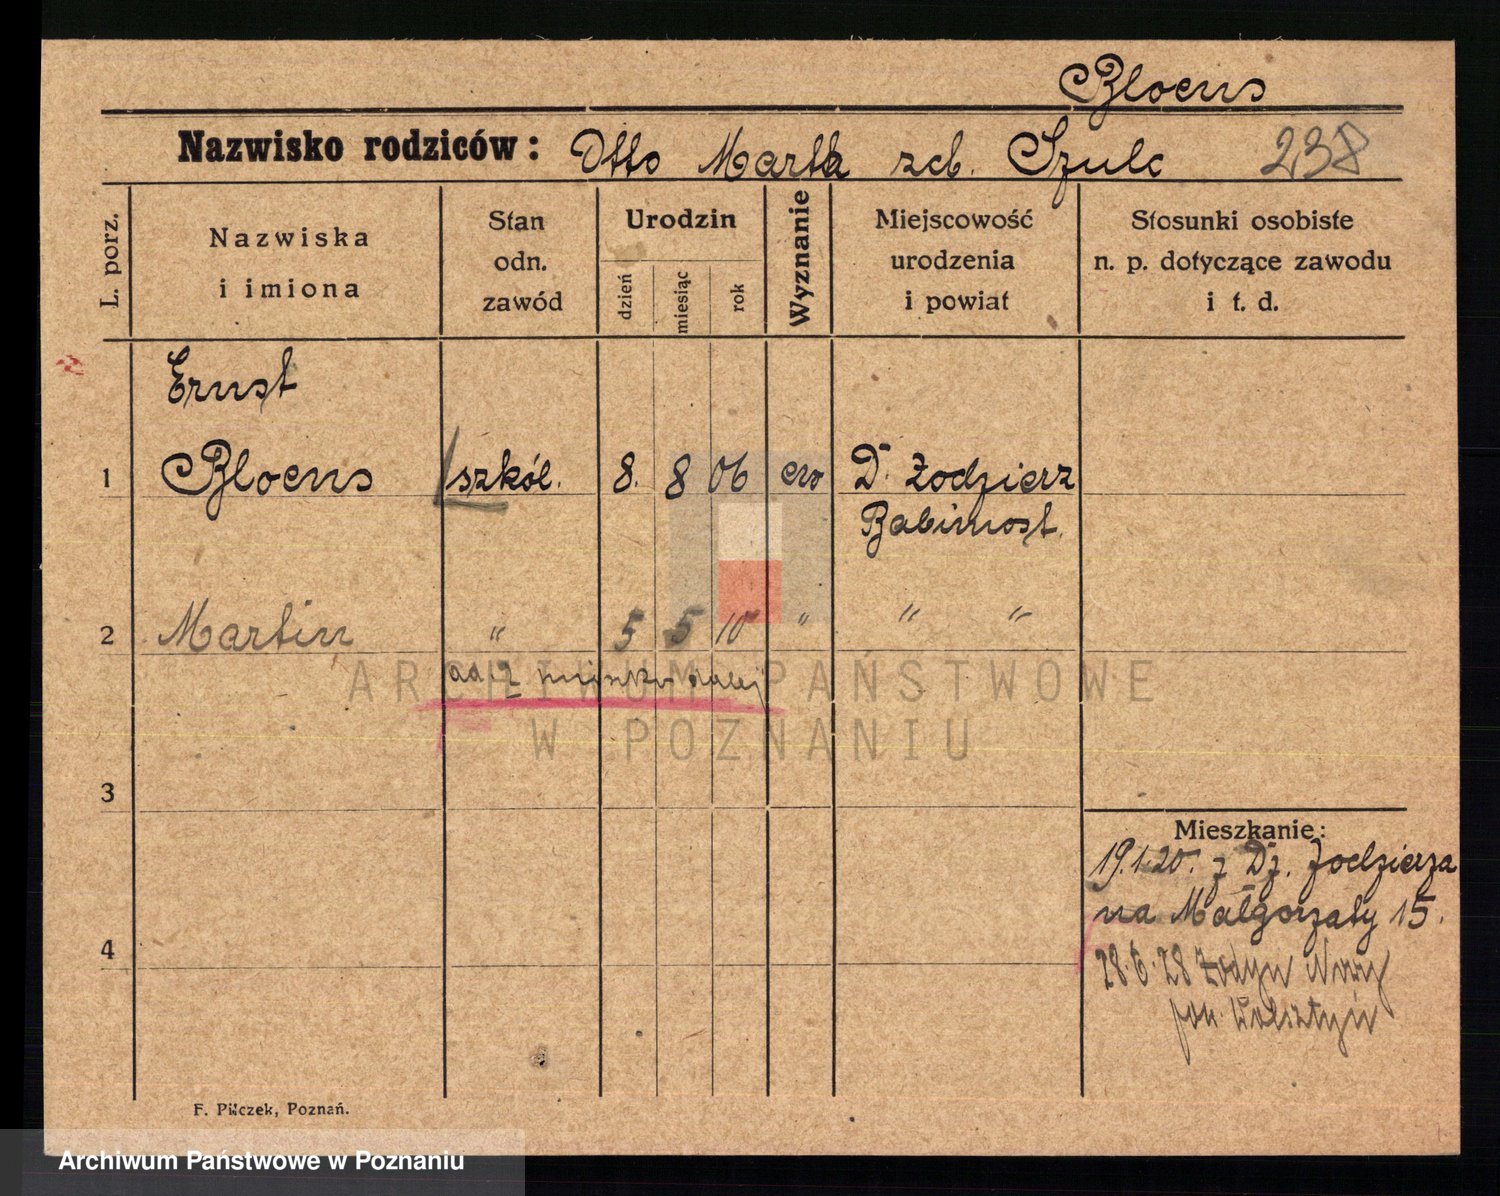 Bloens
Nazwisko rodziców: Otto Marta zeb. Szulc 238
L. porz.
Nazwiska i imiona
Stan odn. zawód
Urodzin
dzień
miesiąc
rok
Wyznanie
Miejscowość urodzenia i powiat
Stosunki osobiste n. p. dotyczące zawodu i t. d.
Ernst
1 Bloens szkól. 8. 8 06 ew D. Żodzierz
Babimost.
2 Martin " 5 5 10 " " "
3
Mieszkanie:
19.1.20. z Dz. Żodzierza
na Małgorzaty 15.
4
28.6.28 Żodyn Nowy
pow. Wolsztyn
F. Pilczek, Poznań.
ARCHIWUM PAŃSTWOWE
W POZNANIU
Archiwum Państwowe w Poznaniu